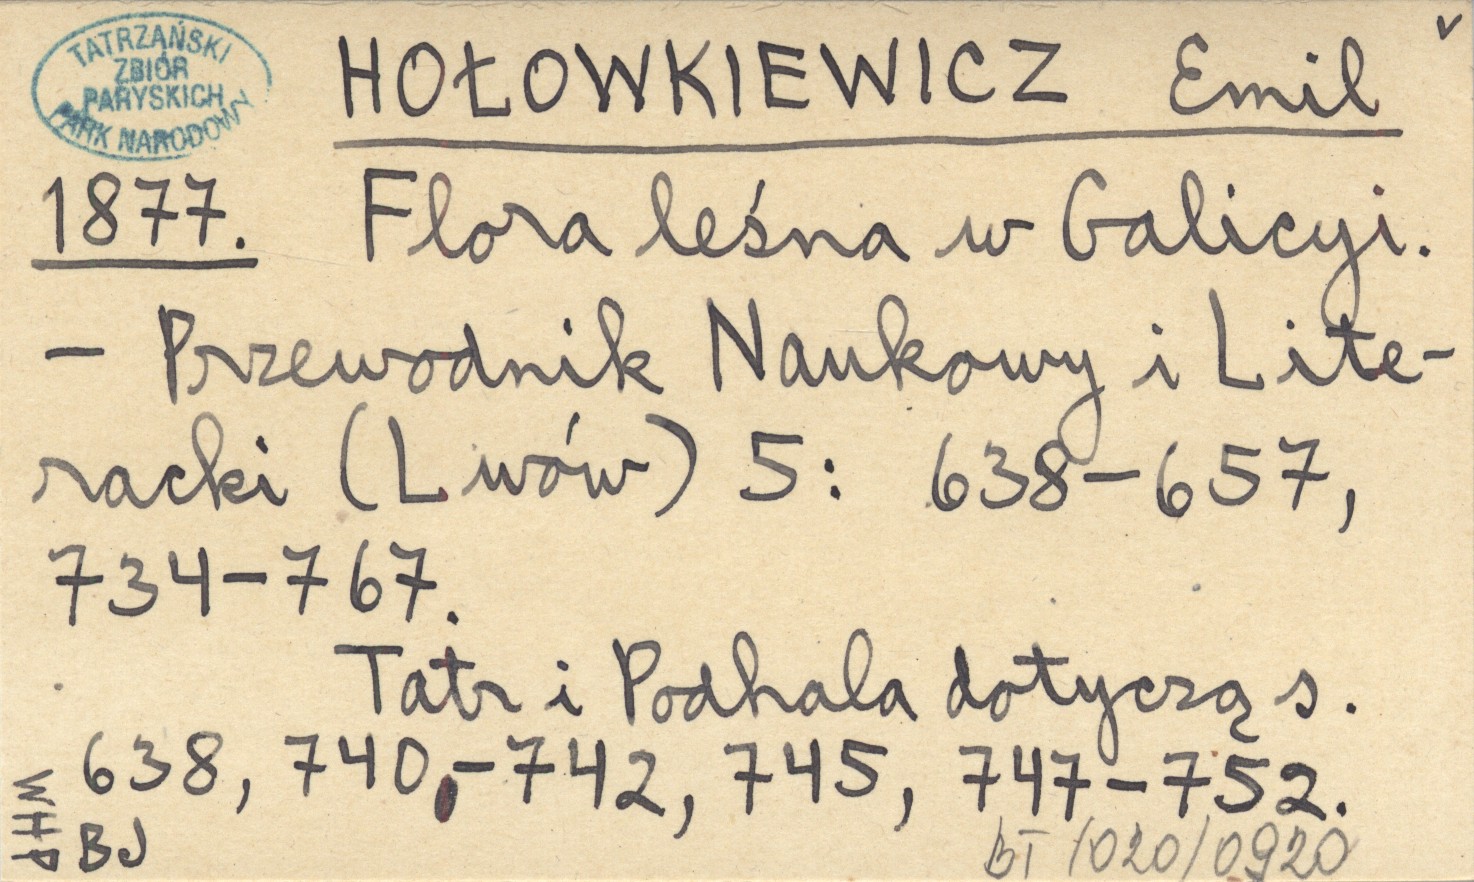 TATRZAŃSKI
ZBIÓR
PARYSKICH
PARK NARODOWY
HOŁOWKIEWICZ Emil
1877. Flora leśna w Galicyi.
– Przewodnik Naukowy i Lite-
racki (Lwów) 5: 638–657,
734–767.
Tatr i Podhala dotyczą s.
638, 740,–742, 745, 747–752.
WHP
BJ
BT /020/0920